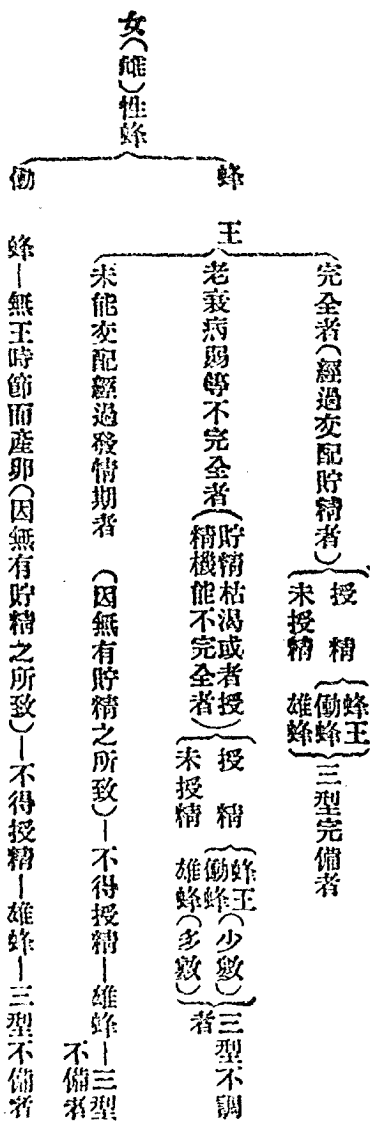 女(雌)性蜂
蜂王
完全者(經過交配貯精者)
授精
未授精
蜂王
働蜂
雄蜂
三型完備者
老衰病弱等不完全者(貯精枯渴或者授
精機能不完全者)
授精
未授精
蜂王
働蜂(少數)
雄蜂(多數)
三型不調
者
未能交配經過發情期者 (因無有貯精之所致)—不得授精—雄蜂—三型
不備者
働蜂—無王時節而產卵(因無有貯精之所致)—不得授精—雄蜂—三型不備者